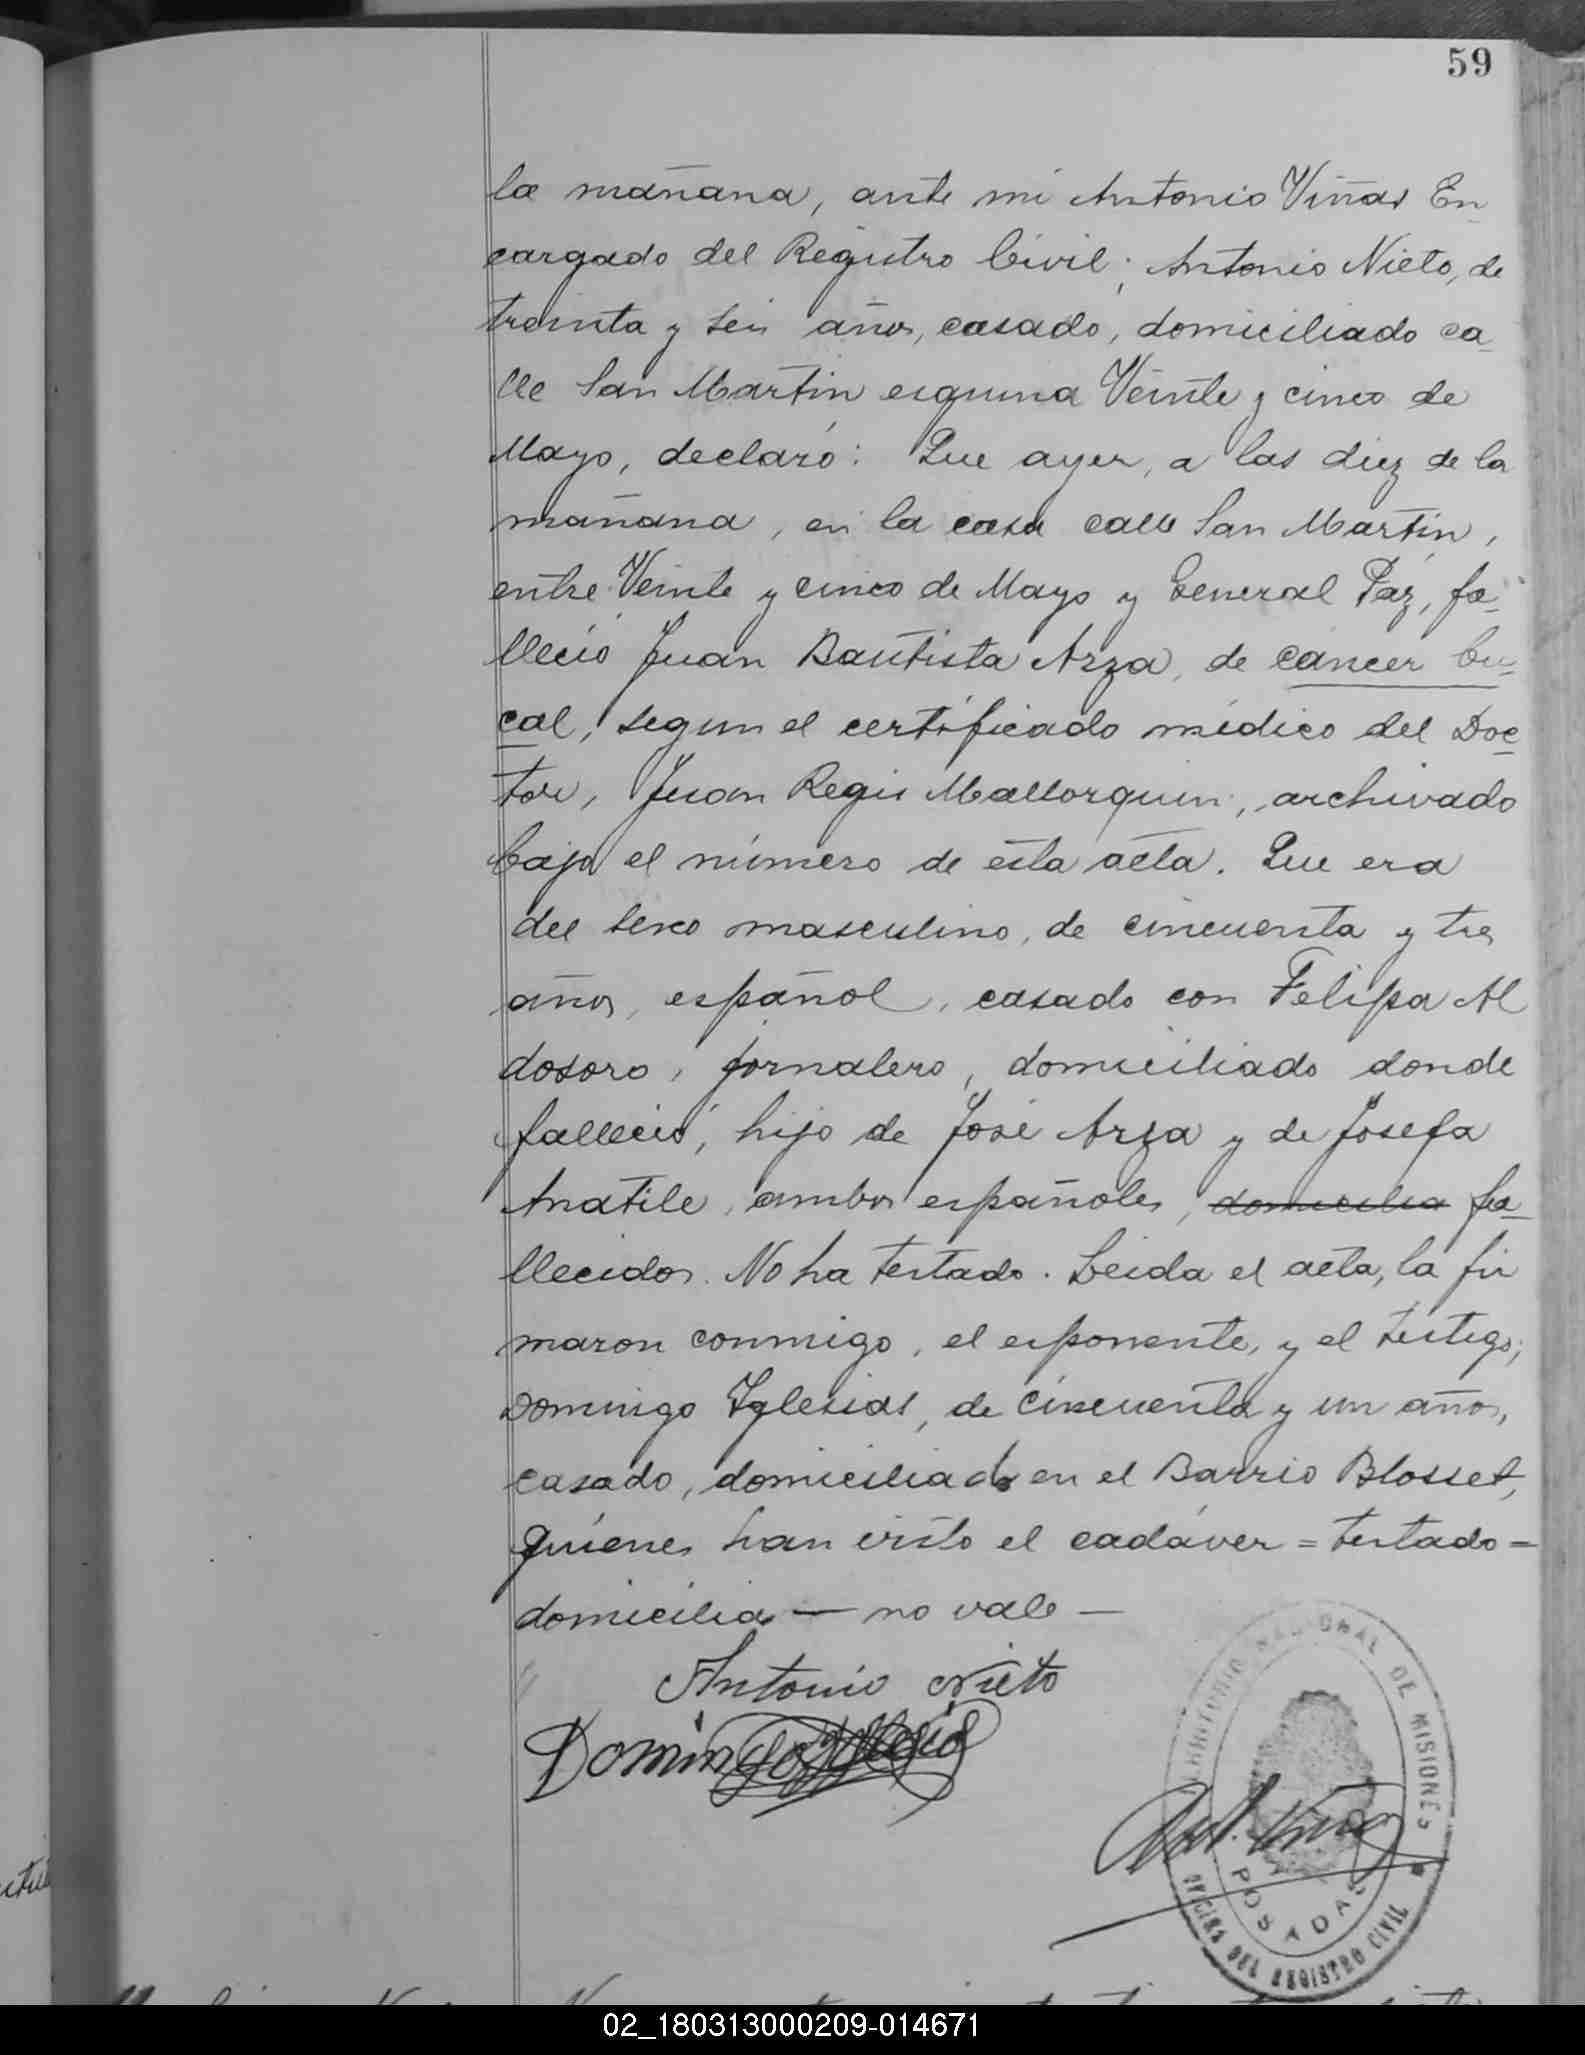 59
la mañana, ante mi Antonio Viñas En
cargado del Registro Civil; Antonio Nieto, de
treinta y seis años, casado, domiciliado ca
lle San Martin esquina Veinte y cinco de
Mayo, declaró: Que ayer, a las diez de la
mañana, en la casa calle San Martin,
entre Veinte y cinco de Mayo y General Paz, fa
lleció Juan Bautista Arza, de cáncer bu
cal, segun el certificado médico del Doc
tor, Juan Regis Mallorquin, archivado
bajo el número de esta acta. Que era
del sexo masculino, de cincuenta y tres
años, español, casado con Felipa Al
dosoro, jornalero, domiciliado donde
falleció, hijo de José Arza y de Josefa
Anatile, ambos españoles, domicilia fa
llecidos. No ha testado. Leida el acta, la fir
maron conmigo, el esponente, y el testigo,
Domingo Yglesias, de cincuenta y un años,
casado, domiciliado en el Barrio Blosset,
quienes han visto el cadáver = testado =
domicilia — no vale —
Antonio Nieto
Domingo Yglesias
TERRITORIO NACIONAL DE MISIONES
POSADAS
OFICINA DEL REGISTRO CIVIL
Ant. Viñas
02_180313000209-014671